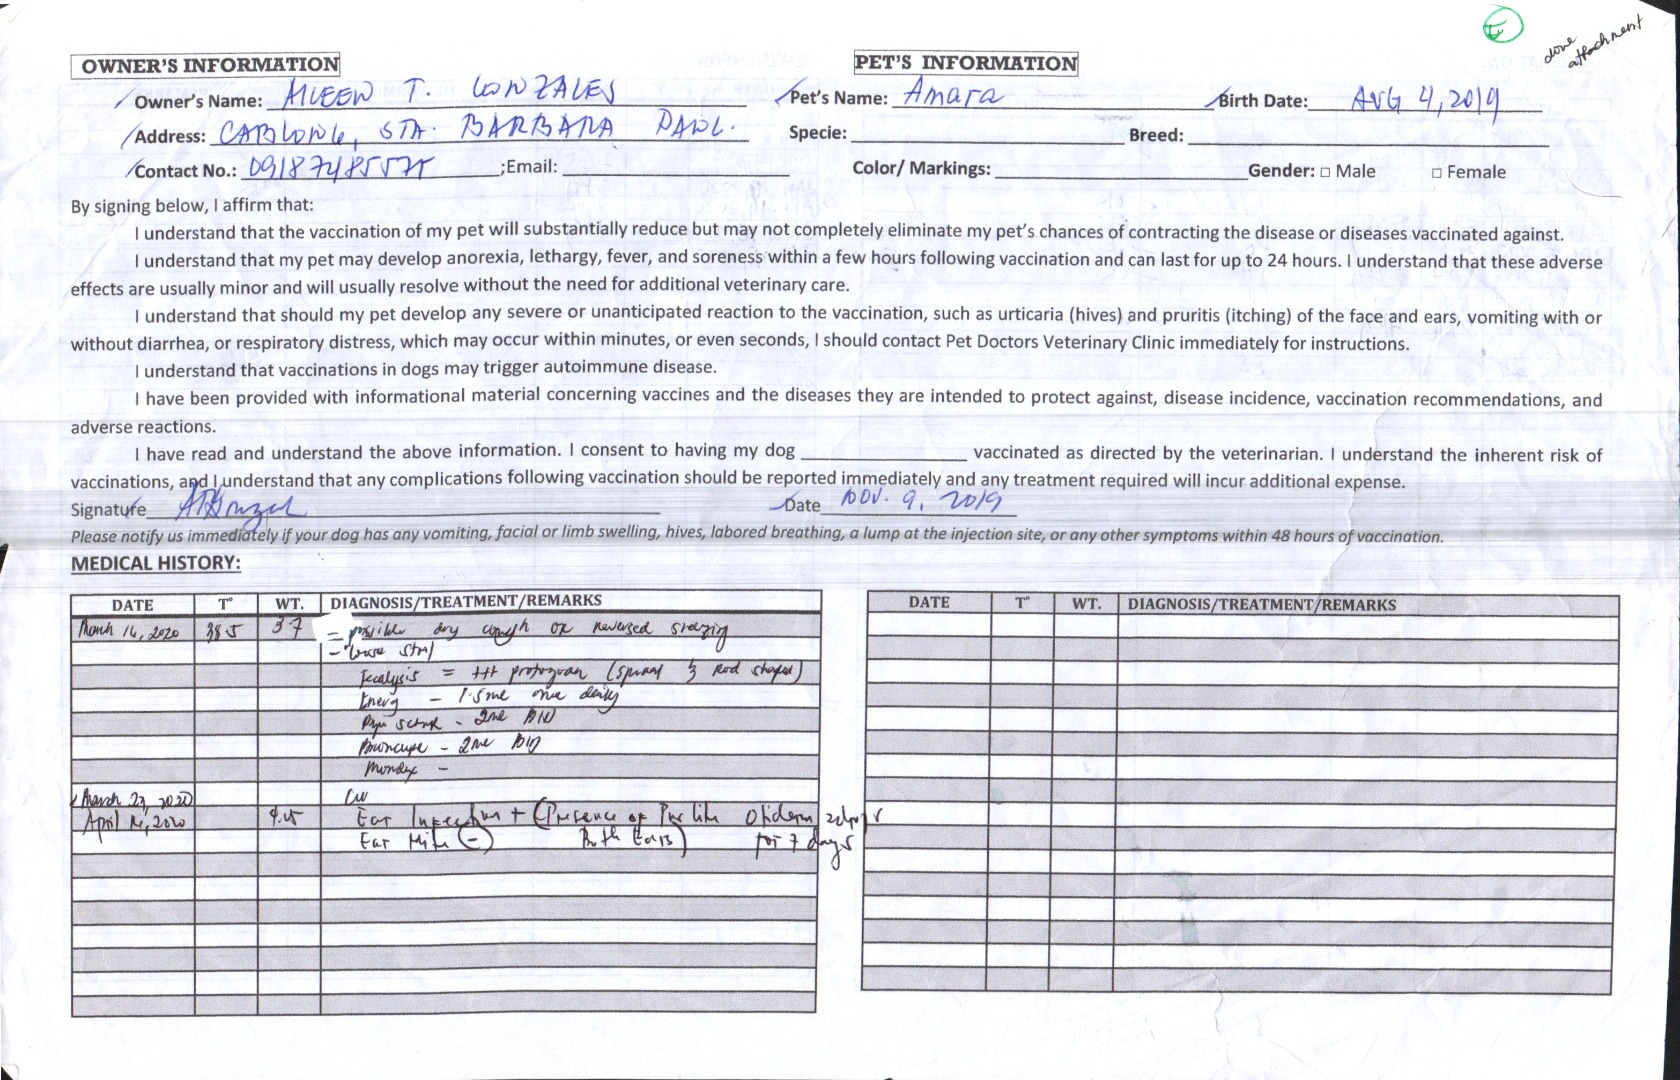 done
attachment
OWNER'S INFORMATION
PET'S INFORMATION
Owner's Name: AILEEN T. GONZALES
Pet's Name: Amara
Birth Date: AUG 4, 2019
Address: CABLONG, STA. BARBARA PANG.
Specie:
Breed:
Contact No.: ;Email:
Color/ Markings:
Gender: □ Male □ Female
By signing below, I affirm that:
I understand that the vaccination of my pet will substantially reduce but may not completely eliminate my pet's chances of contracting the disease or diseases vaccinated against.
I understand that my pet may develop anorexia, lethargy, fever, and soreness within a few hours following vaccination and can last for up to 24 hours. I understand that these adverse
effects are usually minor and will usually resolve without the need for additional veterinary care.
I understand that should my pet develop any severe or unanticipated reaction to the vaccination, such as urticaria (hives) and pruritis (itching) of the face and ears, vomiting with or
without diarrhea, or respiratory distress, which may occur within minutes, or even seconds, I should contact Pet Doctors Veterinary Clinic immediately for instructions.
I understand that vaccinations in dogs may trigger autoimmune disease.
I have been provided with informational material concerning vaccines and the diseases they are intended to protect against, disease incidence, vaccination recommendations, and
adverse reactions.
I have read and understand the above information. I consent to having my dog ________ vaccinated as directed by the veterinarian. I understand the inherent risk of
vaccinations, and I understand that any complications following vaccination should be reported immediately and any treatment required will incur additional expense.
Signature
Date NOV. 9, 2019
Please notify us immediately if your dog has any vomiting, facial or limb swelling, hives, labored breathing, a lump at the injection site, or any other symptoms within 48 hours of vaccination.
MEDICAL HISTORY:
DATE T° WT. DIAGNOSIS/TREATMENT/REMARKS
DATE T° WT. DIAGNOSIS/TREATMENT/REMARKS
March 16, 2020 38.5 3.7 = possible dry cough or reversed sneezing
- loose stool
Fecalysis = +++ protozoan (spiral & Rod shaped)
- 1.5ml once daily
- 2ml BID
- 2ml BID
-
March 23, 2020
April 14, 2020 4.45 Ear Infection + (Presence of Pus like Otiderm 2 drops
Ear Mite (-) Both Ears) for 7 days